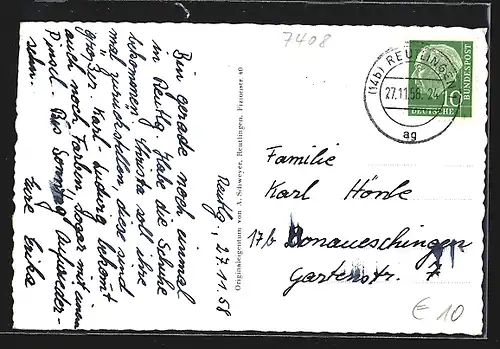 7408
Reutlg., 27.11.58
Bin gerade noch einmal
in Reutlg. Habe die Schuhe
bekommen. Christa soll ihre
mal zurückstellen, diese sind
größer. Karl Ludwig bekommt
auch noch Farben, sogar mit einem
Pinsel. Bis Sonntag Aufwieder-
sehn.
Eure Erika
Originaleigentum von A. Schweyer, Reutlingen, Fizionstr. 40
(14b) REUTLINGEN
27.11.58. 24
ag
10
DEUTSCHE
BUNDESPOST
Familie
Karl Hönle
17b Donaueschingen
Gartenstr. 7
€ 10